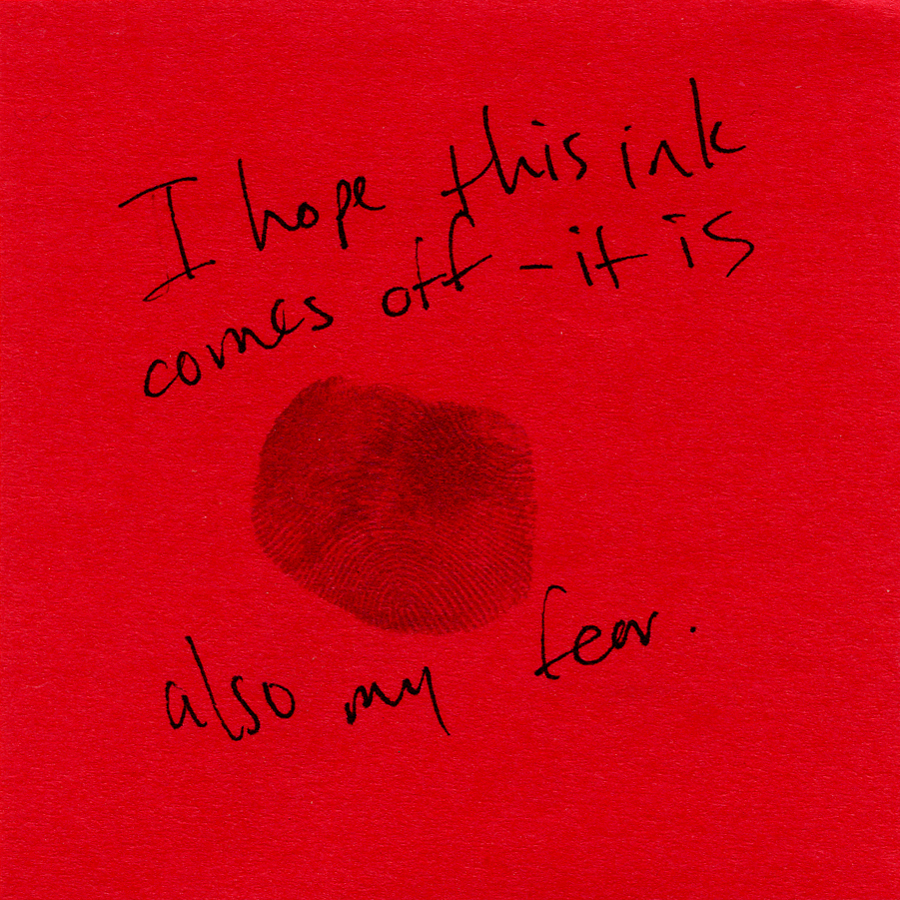 I hope this ink
comes off - it is
also my fear.